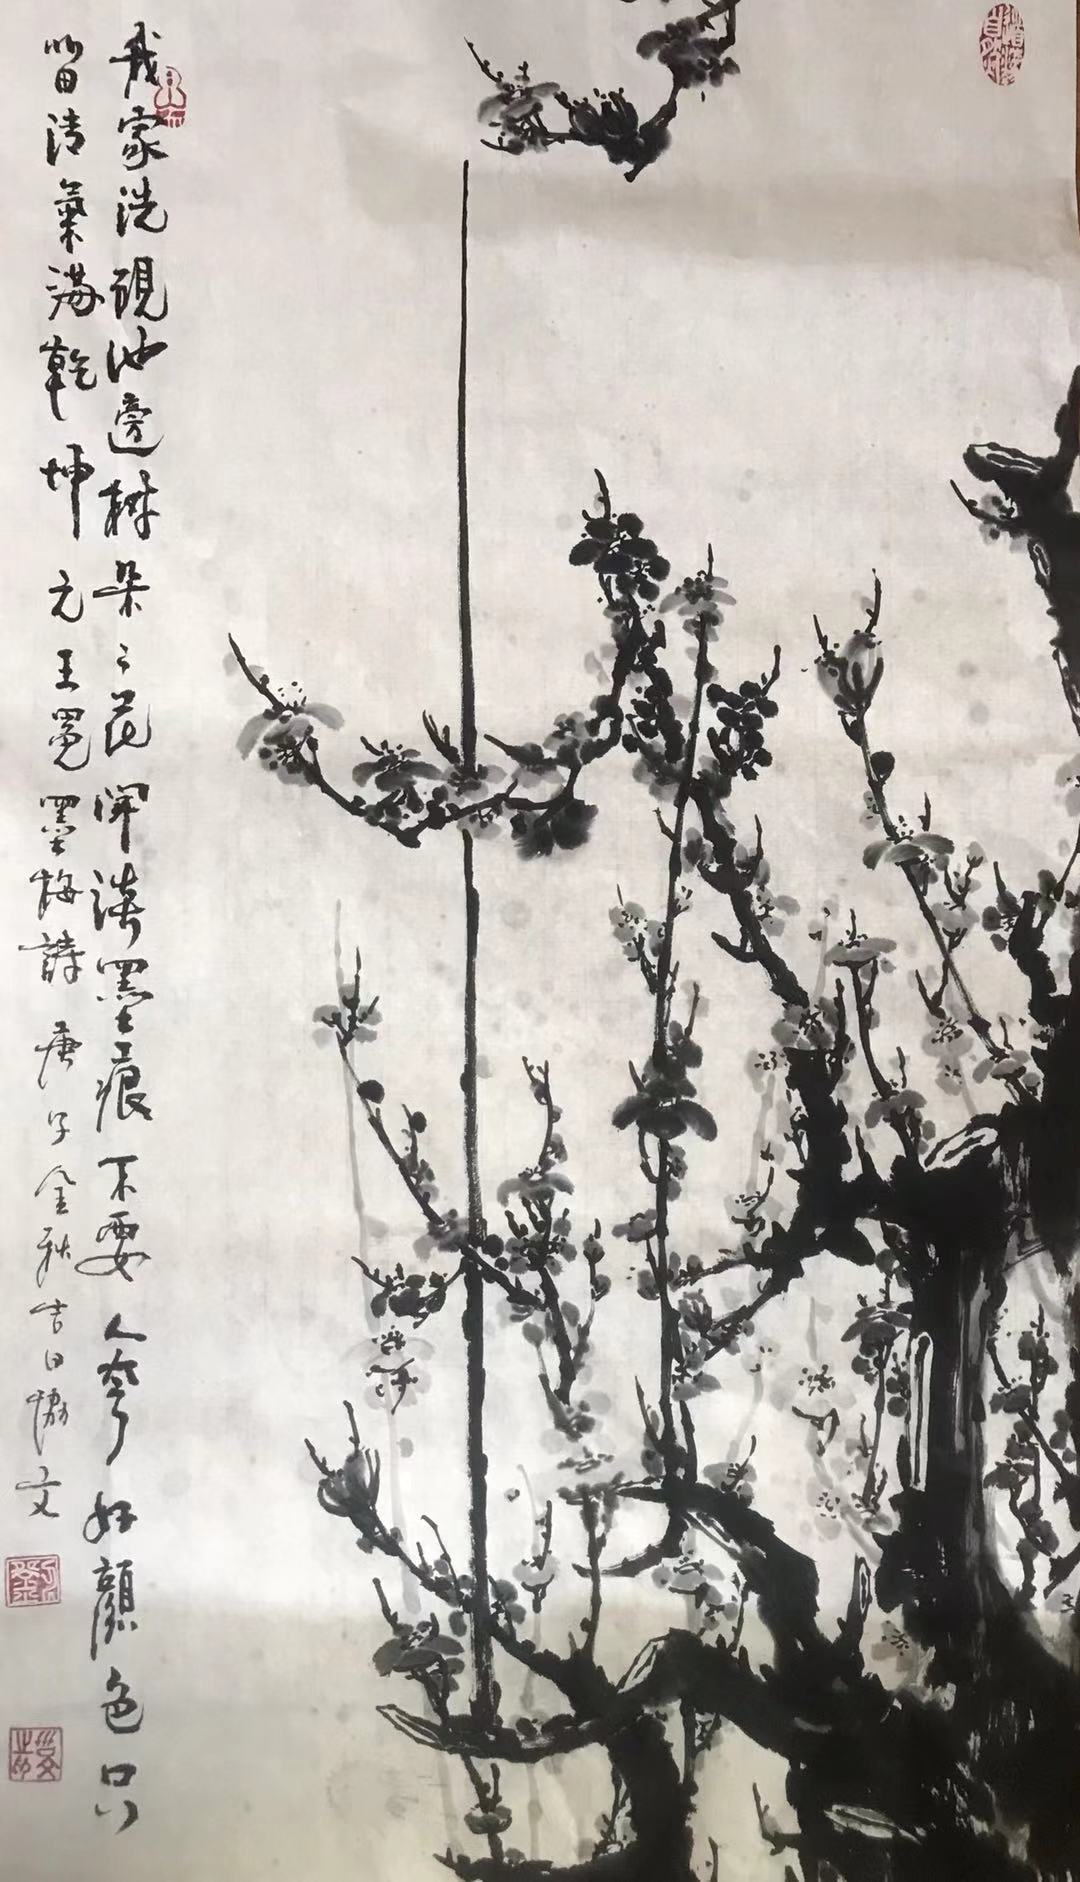 我家洗硯池邊樹朵々花開淡墨痕不要人夸好顏色只
留清氣滿乾坤 元王冕墨梅詩 庚子金秋吉日恊文